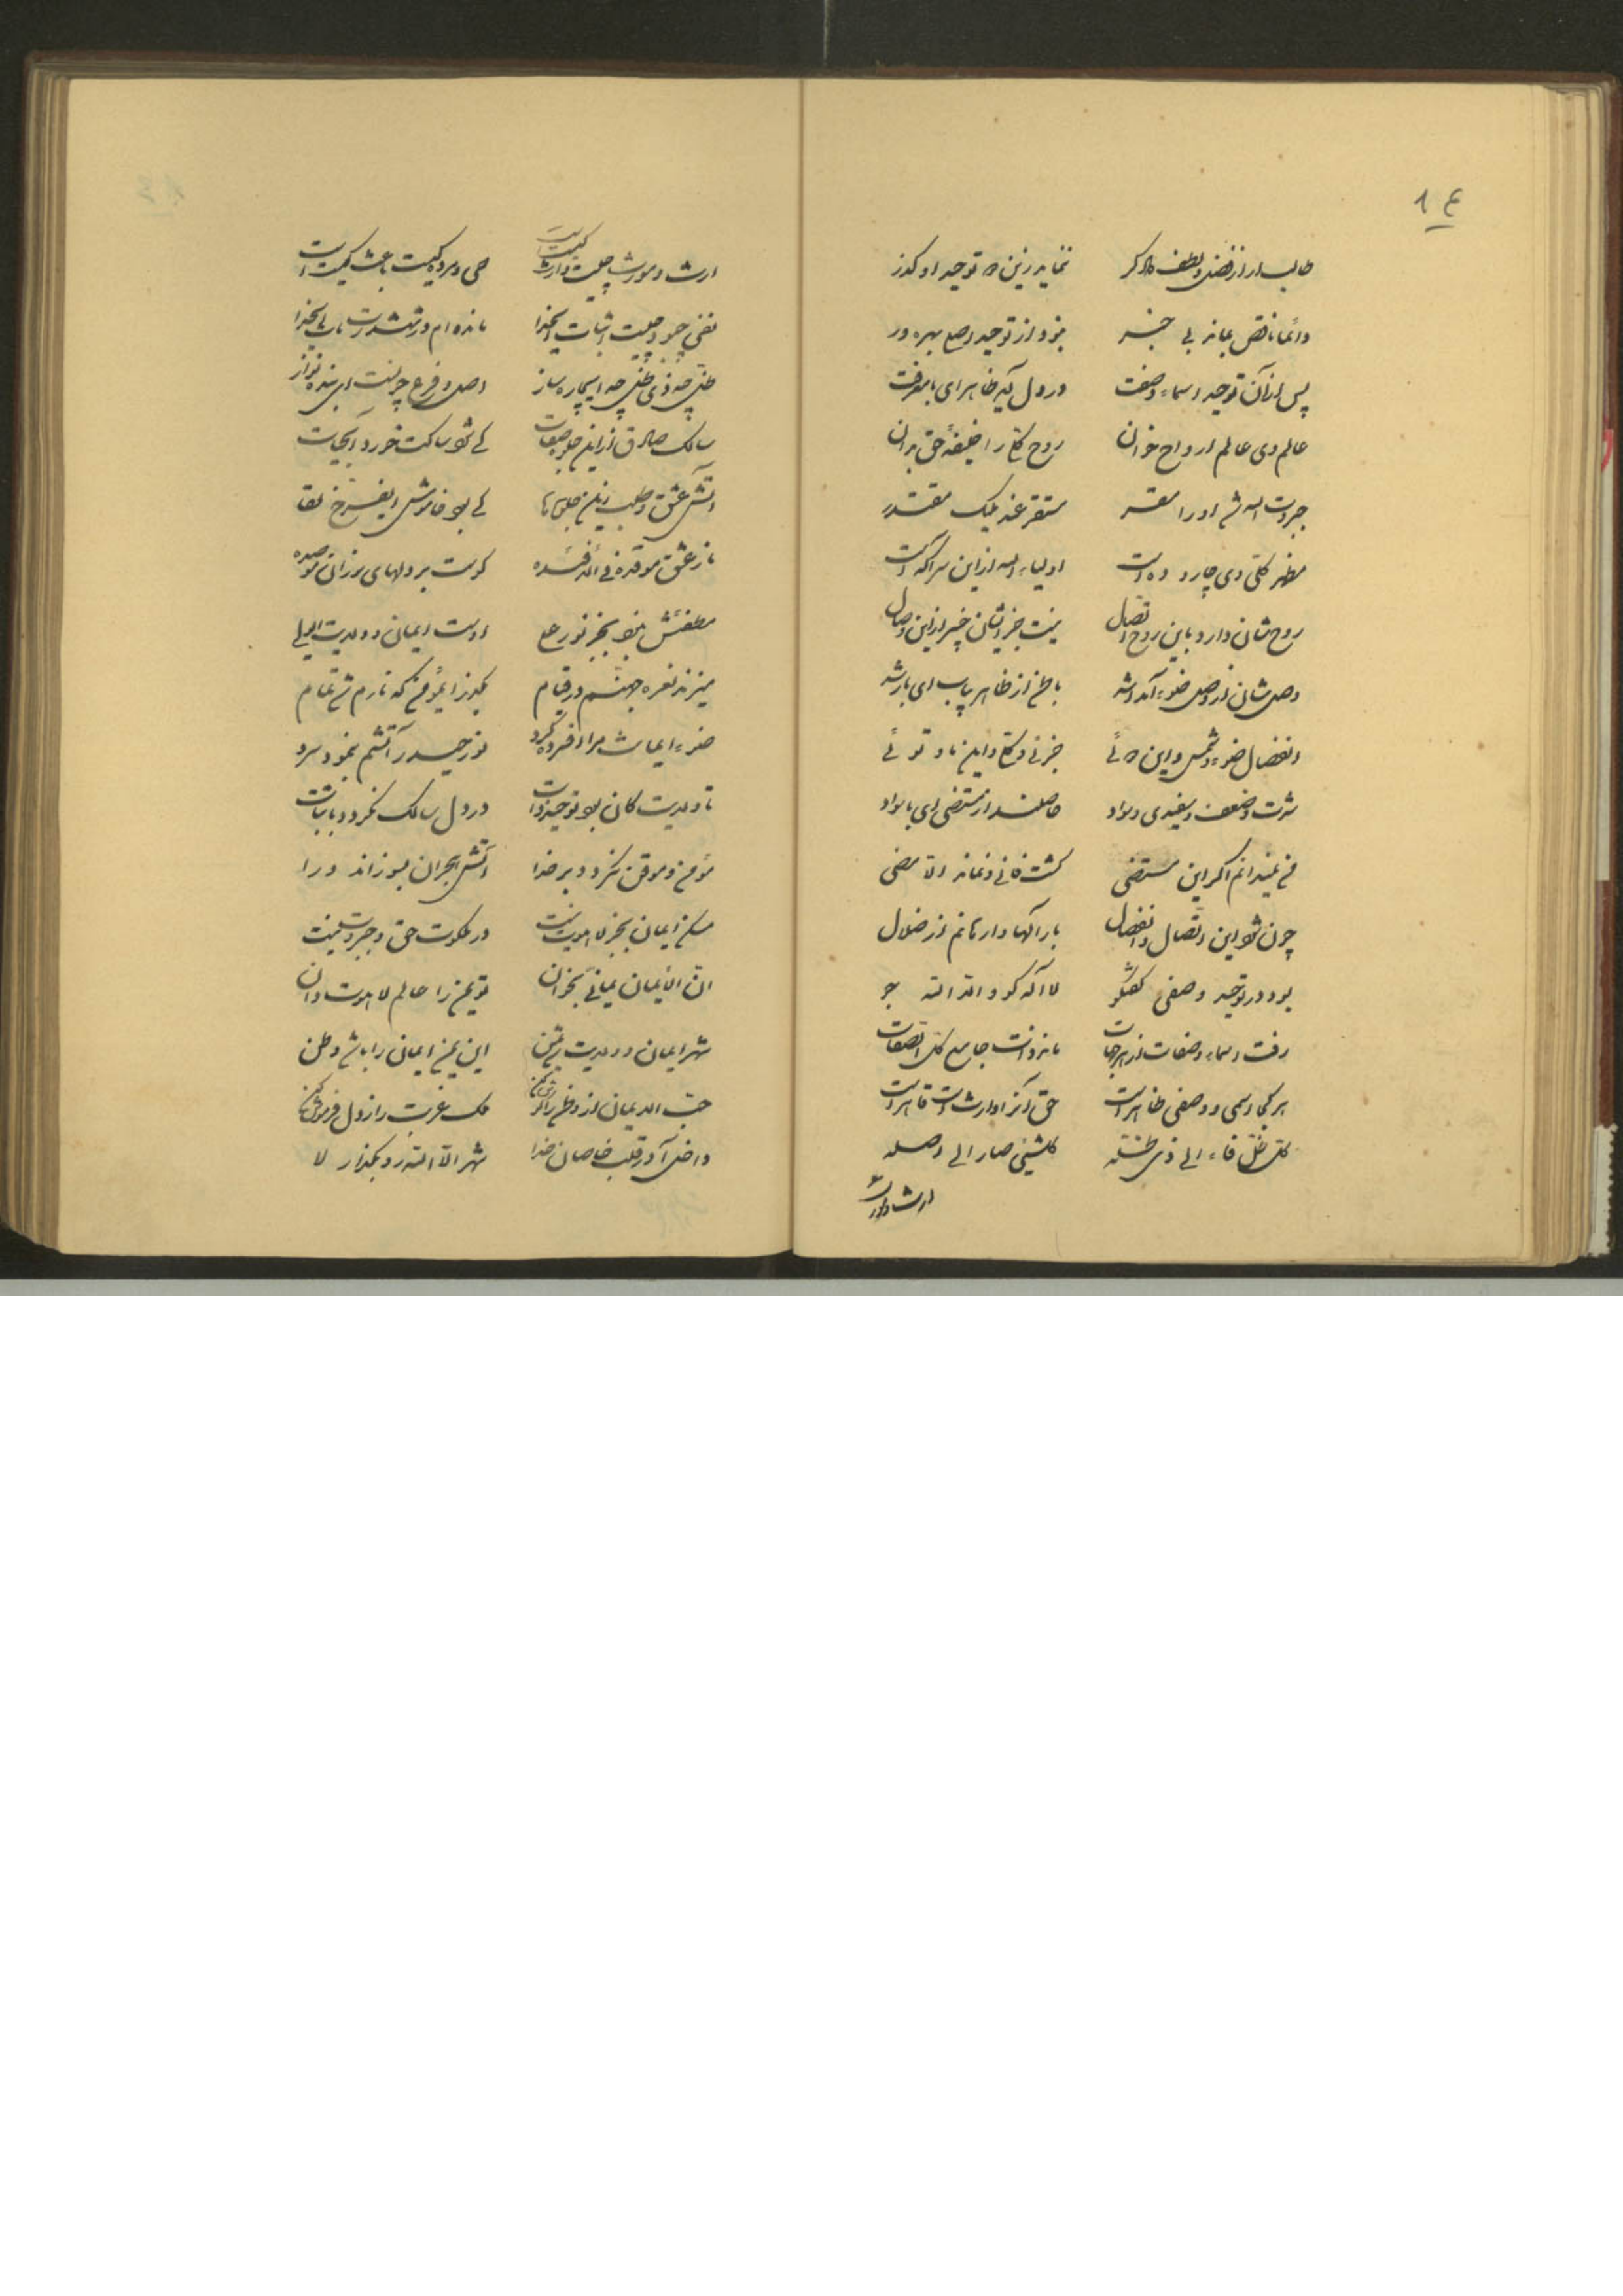 ۱۴
طالب ار از فضل و لطف دادگر ننماید زین ره توحید او گذر
دائما ناقص بماند بی خبر نبود از توحید وصل بهره ور
پس از آن توحید اسماء و صفت در دل آید ظاهر ای بامعرفت
عالم وی عالم ارواح خوان روح را خلیفهٔ حق بدان
جبروت اله شد او را مقر مستقر عند ملیک مقتدر
مظهر کلی وی چارده است اولیاء اله از این سر آگه است
روح شان دارد باین روح اتصال نیست جز ایشان خبیر از این وصال
وصل شان از وصل ضوء آمد باطن از ظاهر بیاب ای
انفصال ضوء شمس و این جزئی و کلی و این ما و توئی
شدت و ضعف و سفیدی و سواد حاصلند از مستضی ای با سواد
من نمیدانم اگر این مستضی گشت فانی و نماند الا مضی
چون شود این اتصال و انفصال بار الها وارهانم از ضلال
بود در توحید وصفی گفتگو لا اله گو و الا الله جو
رفت اسماء و صفات از هر جهات ماند ذات جامع کل الصفات
هر کجا اسمی و وصفی ظاهر است حق آنرا وارث است قاهر است
کل ظل فاء الی ذی ظله کلشیئی صار الی اصله
ارث و مورث
ارث و مورث چیست وارث کیست حی و مرده کیست باعث کیست
نفی چبود چیست اثبات ایخدا مانده ام در ششدر مات ایخدا
ظل چه ذی ظل چه ای بیچاره ساز اصل و فرع چیست ای بنده نواز
سالک صادق از این جلو صفات کی شود ساکت خورد آبحیات
آتش عشق و طلب زین جلوه ها کی بود خاموش ای فرخ لقا
نار عشق موقده فی الافئده کوست بر دلهای سوزان موصده
مطفئش نبود بجز نور علی اوست ایمان و ولایت ای ولی
میزند نعره جهنم در قیام بگذر ای مؤمن که نارم شد تمام
ضوء ایمانت مرا افسرده کرد نور حیدر آتشم بنمود سرد
تا ولایت کان بود توحید ذات در دل سالک نگردد با ثبات
مؤمن و موقن نگردد بر خدا آتش هجران بسوزاند ورا
مسکن ایمان بجز لاهوت نیست در ملکوت حق و جبروت نیست
ان الایمان یمانی بخوان تو یمن را عالم لاهوت دان
شهر ایمان و ولایت این یمن ایمان را باشد وطن
حب الایمان از وطن ملک غربت را ز دل فرموش کن
داخل آ در قلب خاصان خدا شهر الا الله رو بگذار لا